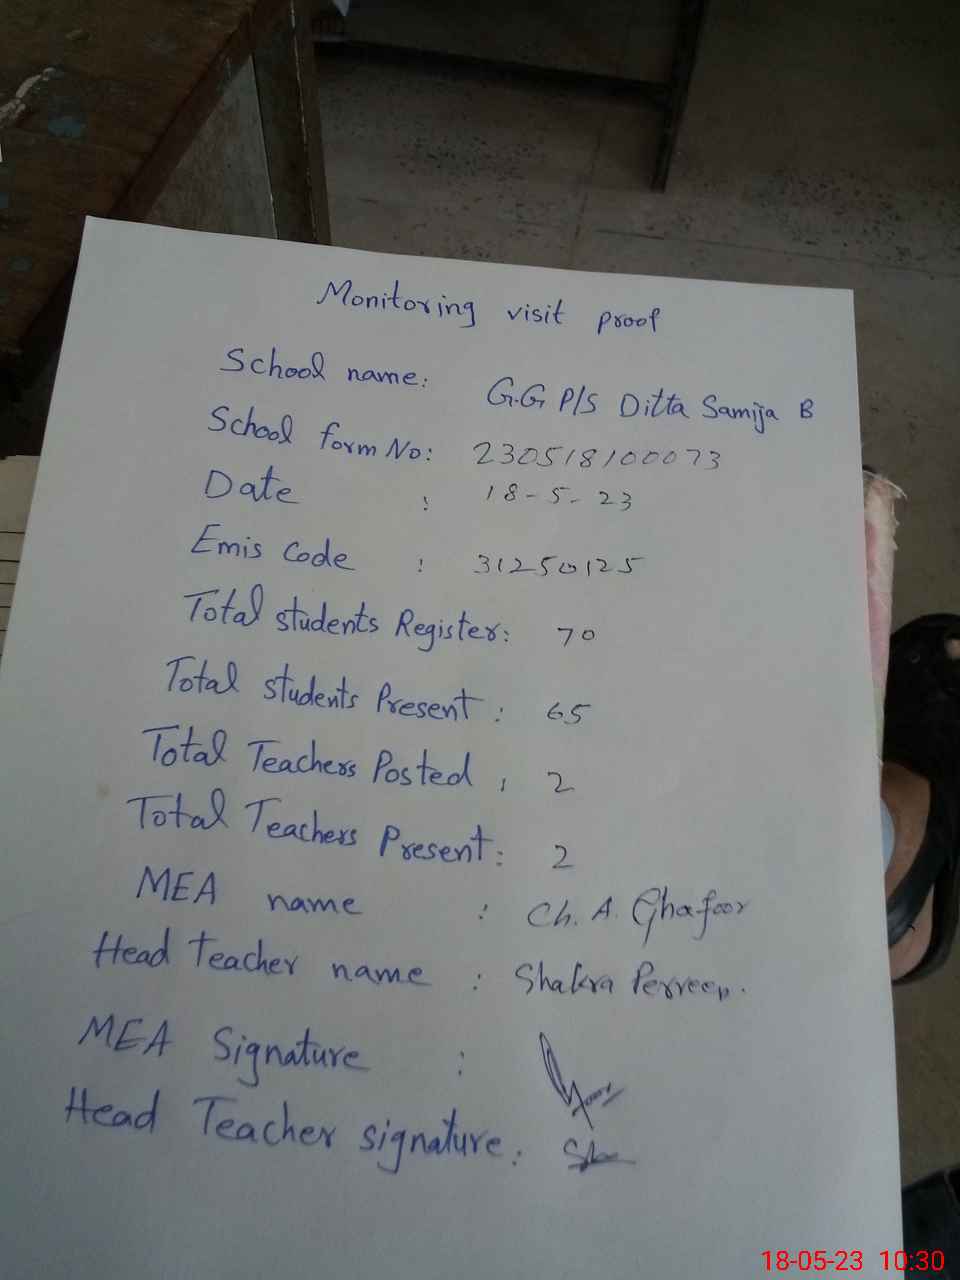 Monitoring visit proof
School name: G.G P/S Ditta Samija B
School form No: 230518100073
Date : 18-5-23
Emis Code : 31250125
Total students Register: 70
Total students Present: 65
Total Teachers Posted , 2
Total Teachers Present: 2
MEA name : Ch. A. Ghafoor
Head Teacher name : Shakra Perveen.
MEA Signature :
Head Teacher signature:
18-05-23 10:30